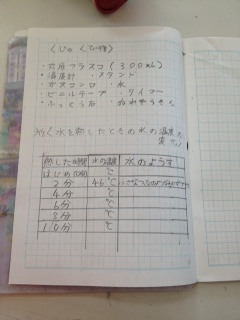 〈じゅんび物〉
・丸底フラスコ(300mL)
・温度計 ・スタンド
・ガスコンロ ・水
・ビニルテープ ・タイマー
・ふっとう石 ・ぬれぞうきん
水を熱したときの水の温度
熱した時間 水の温度 水のようす
はじめ ℃
2分 46℃
4分 ℃
6分 ℃
8分 ℃
10分 ℃